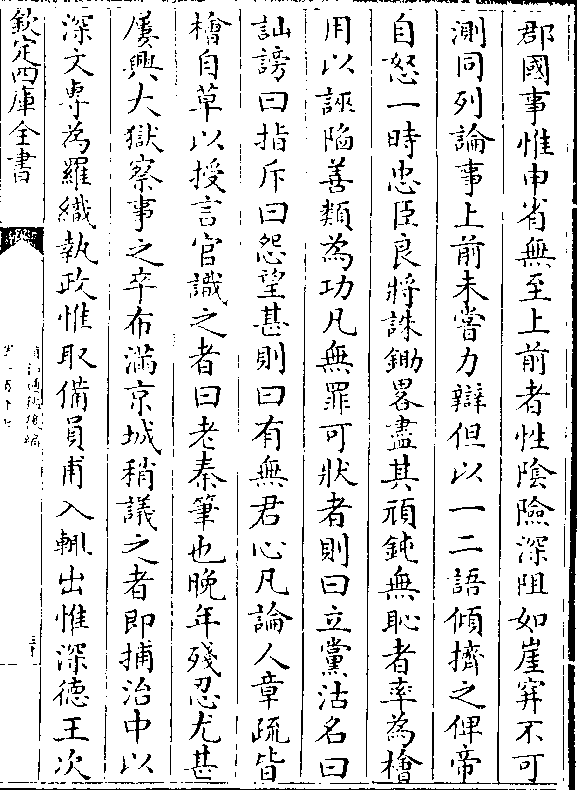 郡國事惟申省無至上前者性陰險深阻如崖穽不可
測同列論事上前未嘗力辯但以一二語傾擠之俾帝
自怒一時忠臣良將誅鋤畧盡其頑鈍無恥者率為檜
用以誣陷善類為功凡無罪可狀者則曰立黨沽名曰
訕謗曰指斥曰怨望甚則曰有無君心凡論人章疏皆
檜自草以授言官識之者曰老秦筆也晚年殘忍尤甚
屢興大獄察事之卒布滿京城稍議之者即捕治中以
深文專為羅織執政惟取備員甫入輒出惟深德王次
欽定四庫全書